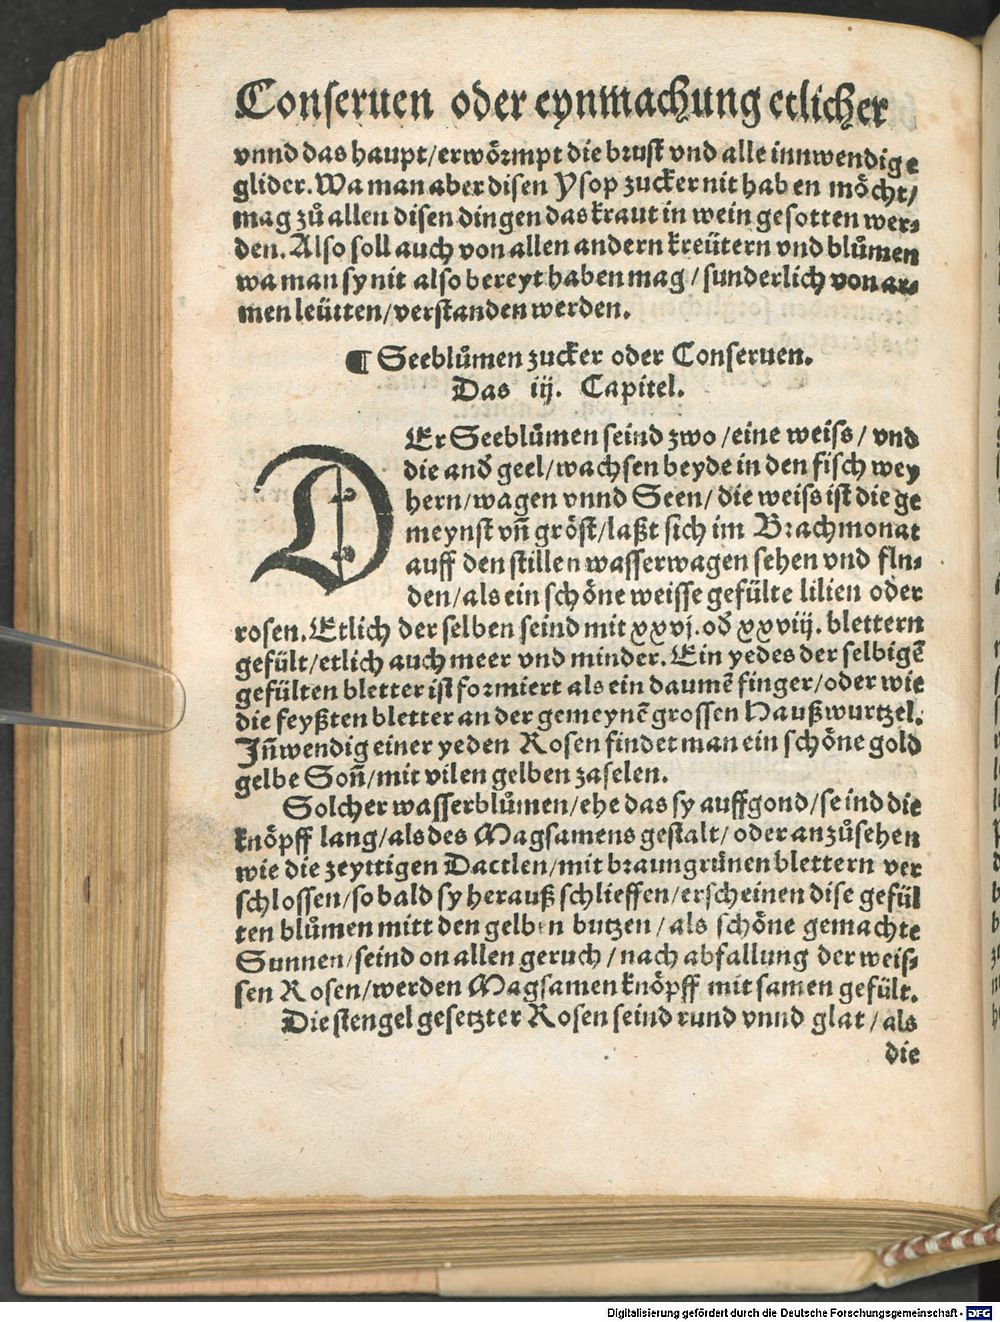 Conseruen oder eynmachung etlicher
vnnd das haupt/erwoͤrmpt die brust vnd alle innwendige
glider. Wa man aber disen Ysop zucker nit haben moͤcht/
mag zuͦ allen disen dingen das kraut in wein gesotten wer⸗
den. Also soll auch von allen andern kreütern vnd bluͦmen
wa man sy nit also bereyt haben mag/sunderlich von ar⸗
men leütten/verstanden werden.
¶ Seebluͦmen zucker oder Conseruen.
Das iij. Capitel.
DEr Seebluͦmen seind zwo/eine weiss/vnd
die and̕ geel/wachsen beyde in den fisch wey
hern/wagen vnnd Seen/die weiss ist die ge
meynst vñ groͤst/laßt sich im Brachmonat
auff den stillen wasserwagen sehen vnd fln⸗
den/als ein schoͤne weisse gefülte lilien oder
rosen. Etlich der selben seind mit xxvj. od̕ xxviij. blettern
gefült/etlich auch meer vnd minder. Ein yedes der selbigẽ
gefülten bletter ist formiert als ein daumẽ finger/oder wie
die feyßten bletter an der gemeynẽ grossen Haußwurtzel.
Iñwendig einer yeden Rosen findet man ein schoͤne gold
gelbe Soñ/mit vilen gelben zaselen.
Solcher wasserbluͦmen/ehe das sy auffgond/seind die
knoͤpff lang/als des Magsamens gestalt/oder anzuͦsehen
wie die zeyttigen Dactlen/mit braungrünen blettern ver
schlossen/so bald sy herauß schlieffen/erscheinen dise gefül
ten bluͦmen mitt den gelben butzen/als schoͤne gemachte
Sunnen/seind on allen geruch/nach abfallung der weis⸗
sen Rosen/werden Magsamen knoͤpff mit samen gefült.
Die stengel gesetzter Rosen seind rund vnnd glat/als
die
Digitalisierung gefördert durch die Deutsche Forschungsgemeinschaft - DFG